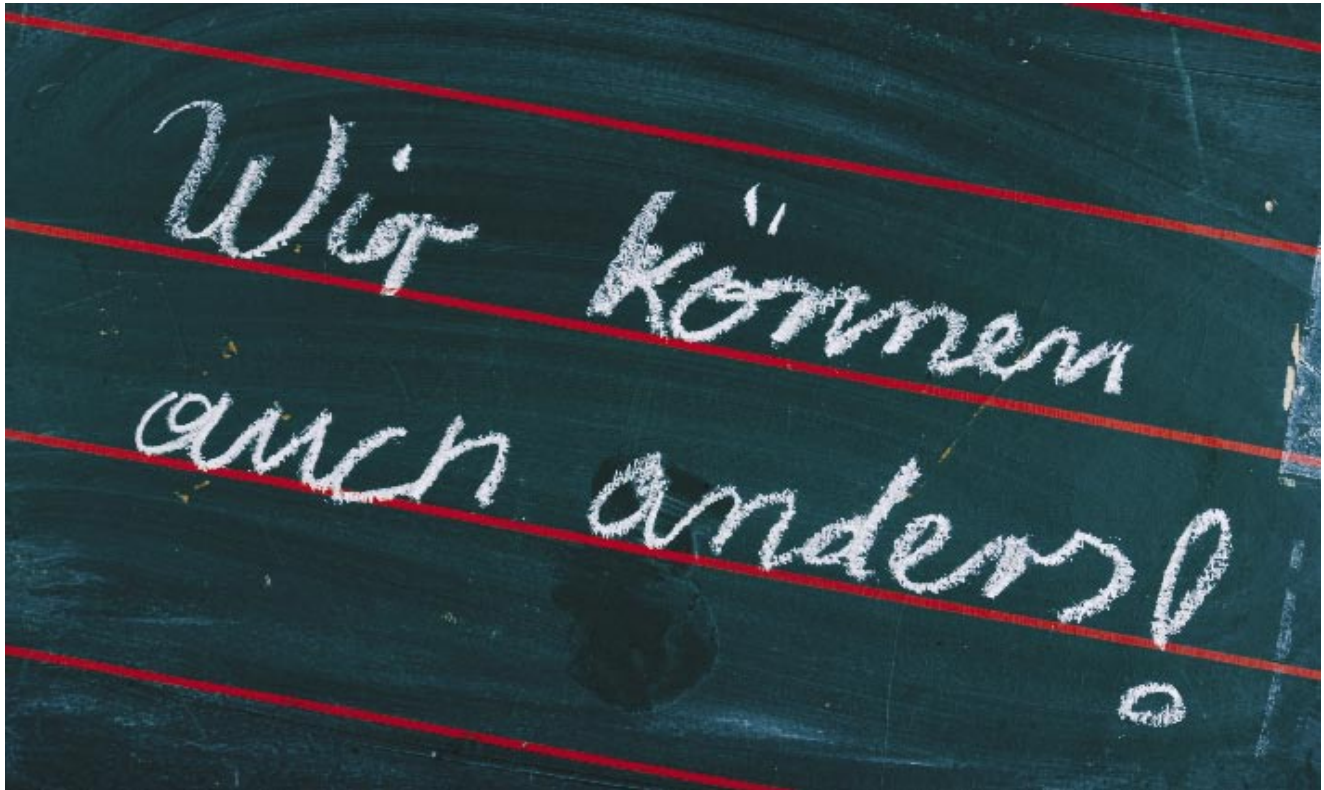 Wir können
auch anders!